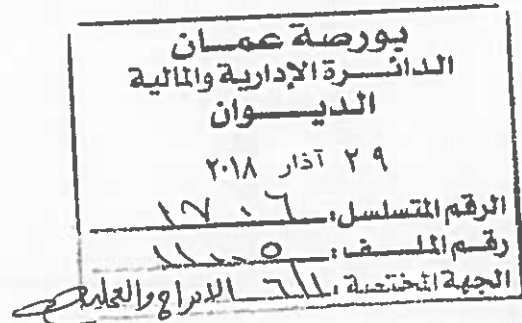 بورصة عمان
الدائرة الإدارية والمالية
الديوان
٢٩ آذار ٢٠١٨
الرقم المتسلسل: ١٧٠٦
رقم الملف:
الجهة المختصة: الادراج والعمليات